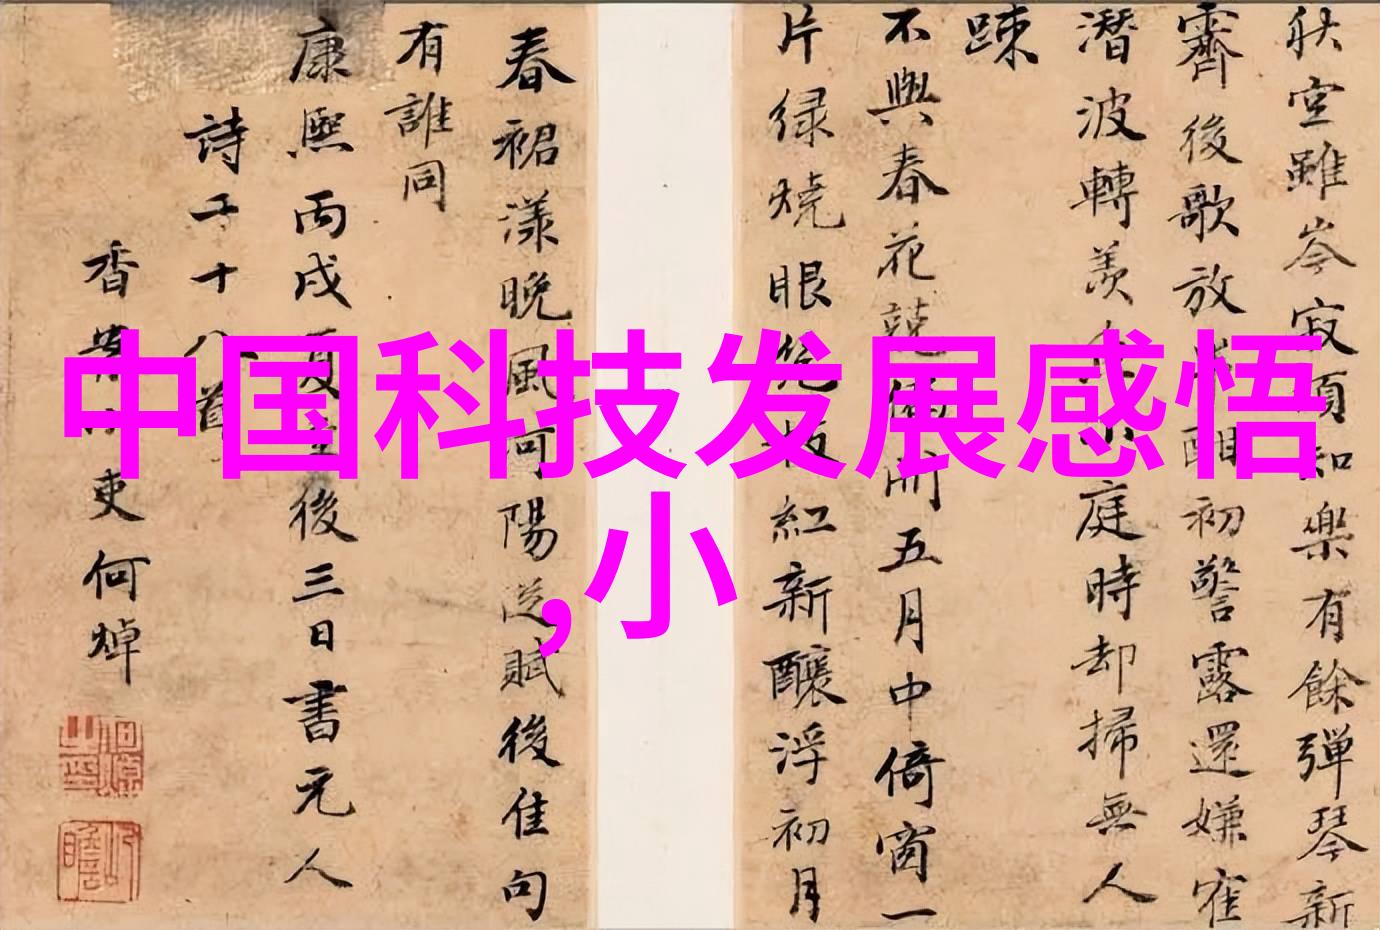 秋空雖岑寂頃知樂有餘彈琴新
霽後歌放酣初警露還嫌
潛波轉羨庭時却掃無人
踈
不與春花開五月中倚窗一
片绿燒眼紅新釀浮初月
春裙漾晚風向陽送賦後佳句
有誰同
康熙丙戌夏至後三日書元人
詩二十八首
香吏何焯
中国科技发展感悟
,小